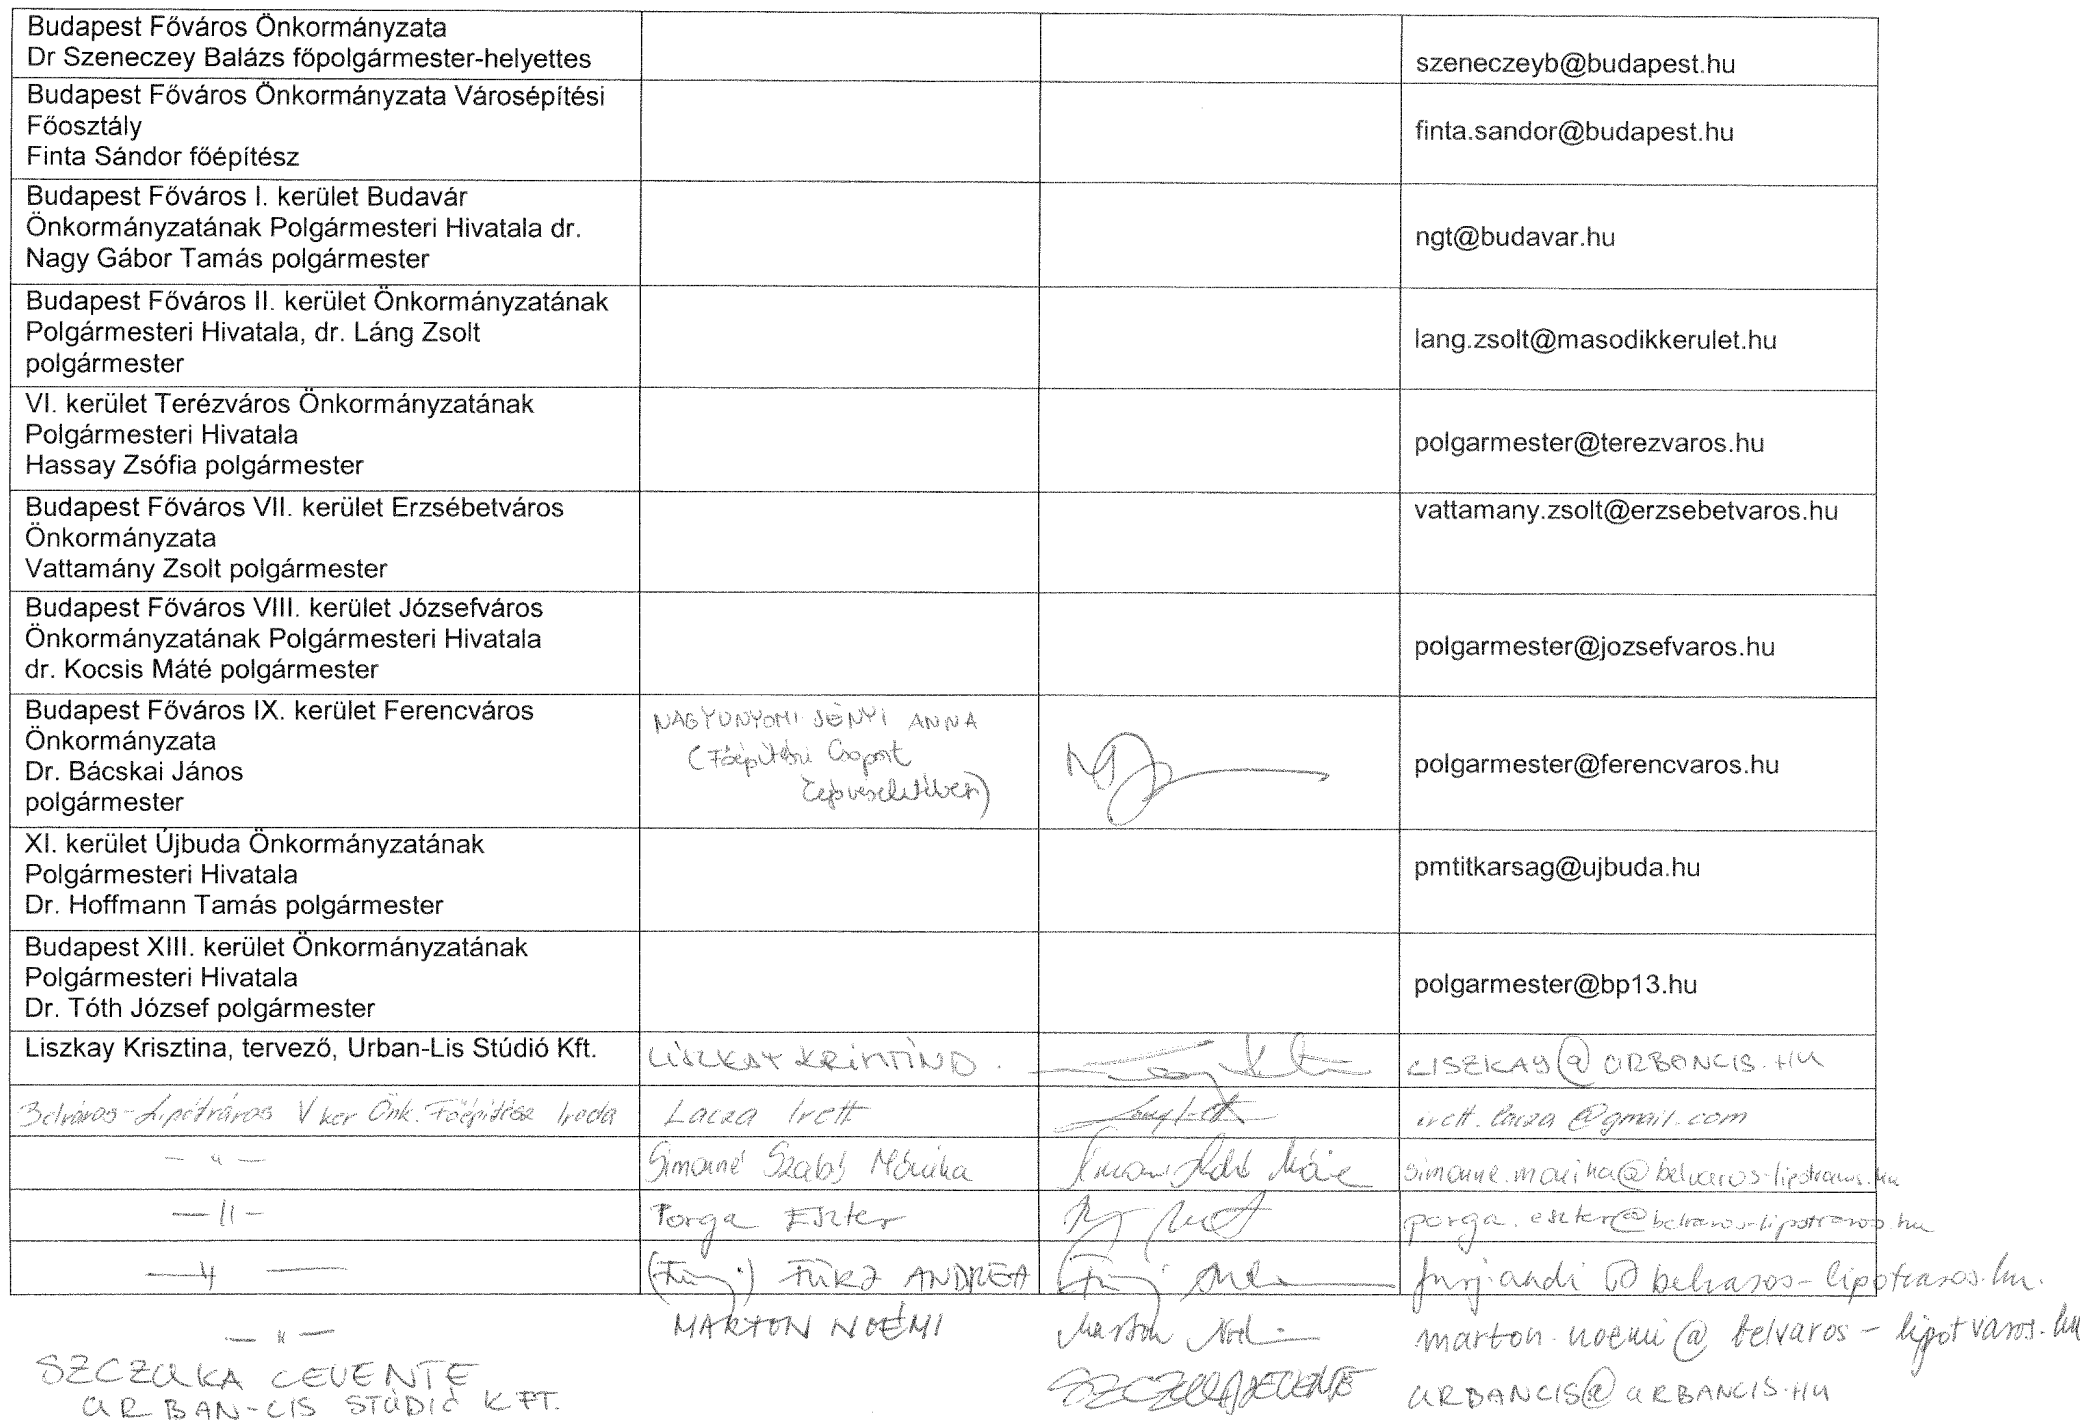 Budapest Főváros Önkormányzata
Dr Szeneczey Balázs főpolgármester-helyettes
szeneczeyb@budapest.hu
Budapest Főváros Önkormányzata Városépítési
Főosztály
Finta Sándor főépítész
finta.sandor@budapest.hu
Budapest Főváros I. kerület Budavár
Önkormányzatának Polgármesteri Hivatala dr.
Nagy Gábor Tamás polgármester
ngt@budavar.hu
Budapest Főváros II. kerület Önkormányzatának
Polgármesteri Hivatala, dr. Láng Zsolt
polgármester
lang.zsolt@masodikkerulet.hu
VI. kerület Terézváros Önkormányzatának
Polgármesteri Hivatala
Hassay Zsófia polgármester
polgarmester@terezvaros.hu
Budapest Főváros VII. kerület Erzsébetváros
Önkormányzata
Vattamány Zsolt polgármester
vattamany.zsolt@erzsebetvaros.hu
Budapest Főváros VIII. kerület Józsefváros
Önkormányzatának Polgármesteri Hivatala
dr. Kocsis Máté polgármester
polgarmester@jozsefvaros.hu
Budapest Főváros IX. kerület Ferencváros
Önkormányzata
Dr. Bácskai János
polgármester
NAGYUNYOMI SÉNYI ANNA
(Főépítészi Csoport
képviseletében)
polgarmester@ferencvaros.hu
XI. kerület Újbuda Önkormányzatának
Polgármesteri Hivatala
Dr. Hoffmann Tamás polgármester
pmtitkarsag@ujbuda.hu
Budapest XIII. kerület Önkormányzatának
Polgármesteri Hivatala
Dr. Tóth József polgármester
polgarmester@bp13.hu
Liszkay Krisztina, tervező, Urban-Lis Stúdió Kft.
LISZKAY KRISZTINA.
LISZKAY@URBANLIS.HU
Belváros-Lipótváros V ker Önk. Főépítész Iroda
Lacza Irett
irett.lacza@gmail.com
— " —
Simonné Szabó Mónika
simonne.monika@belvaros-lipotvaros.hu
— " —
Porga Eszter
porga.eszter@belvaros-lipotvaros.hu
— " —
(Fürj.) FÜRJ ANDREA
furj.andi@belvaros-lipotvaros.hu.
— " —
MARTON NOÉMI
Marton Noémi
marton.noemi@belvaros-lipotvaros.hu
SZCZUKA LEVENTE
URBAN-LIS STÚDIÓ KFT.
SZCZUKA LEVENTE
URBANLIS@URBANLIS.HU